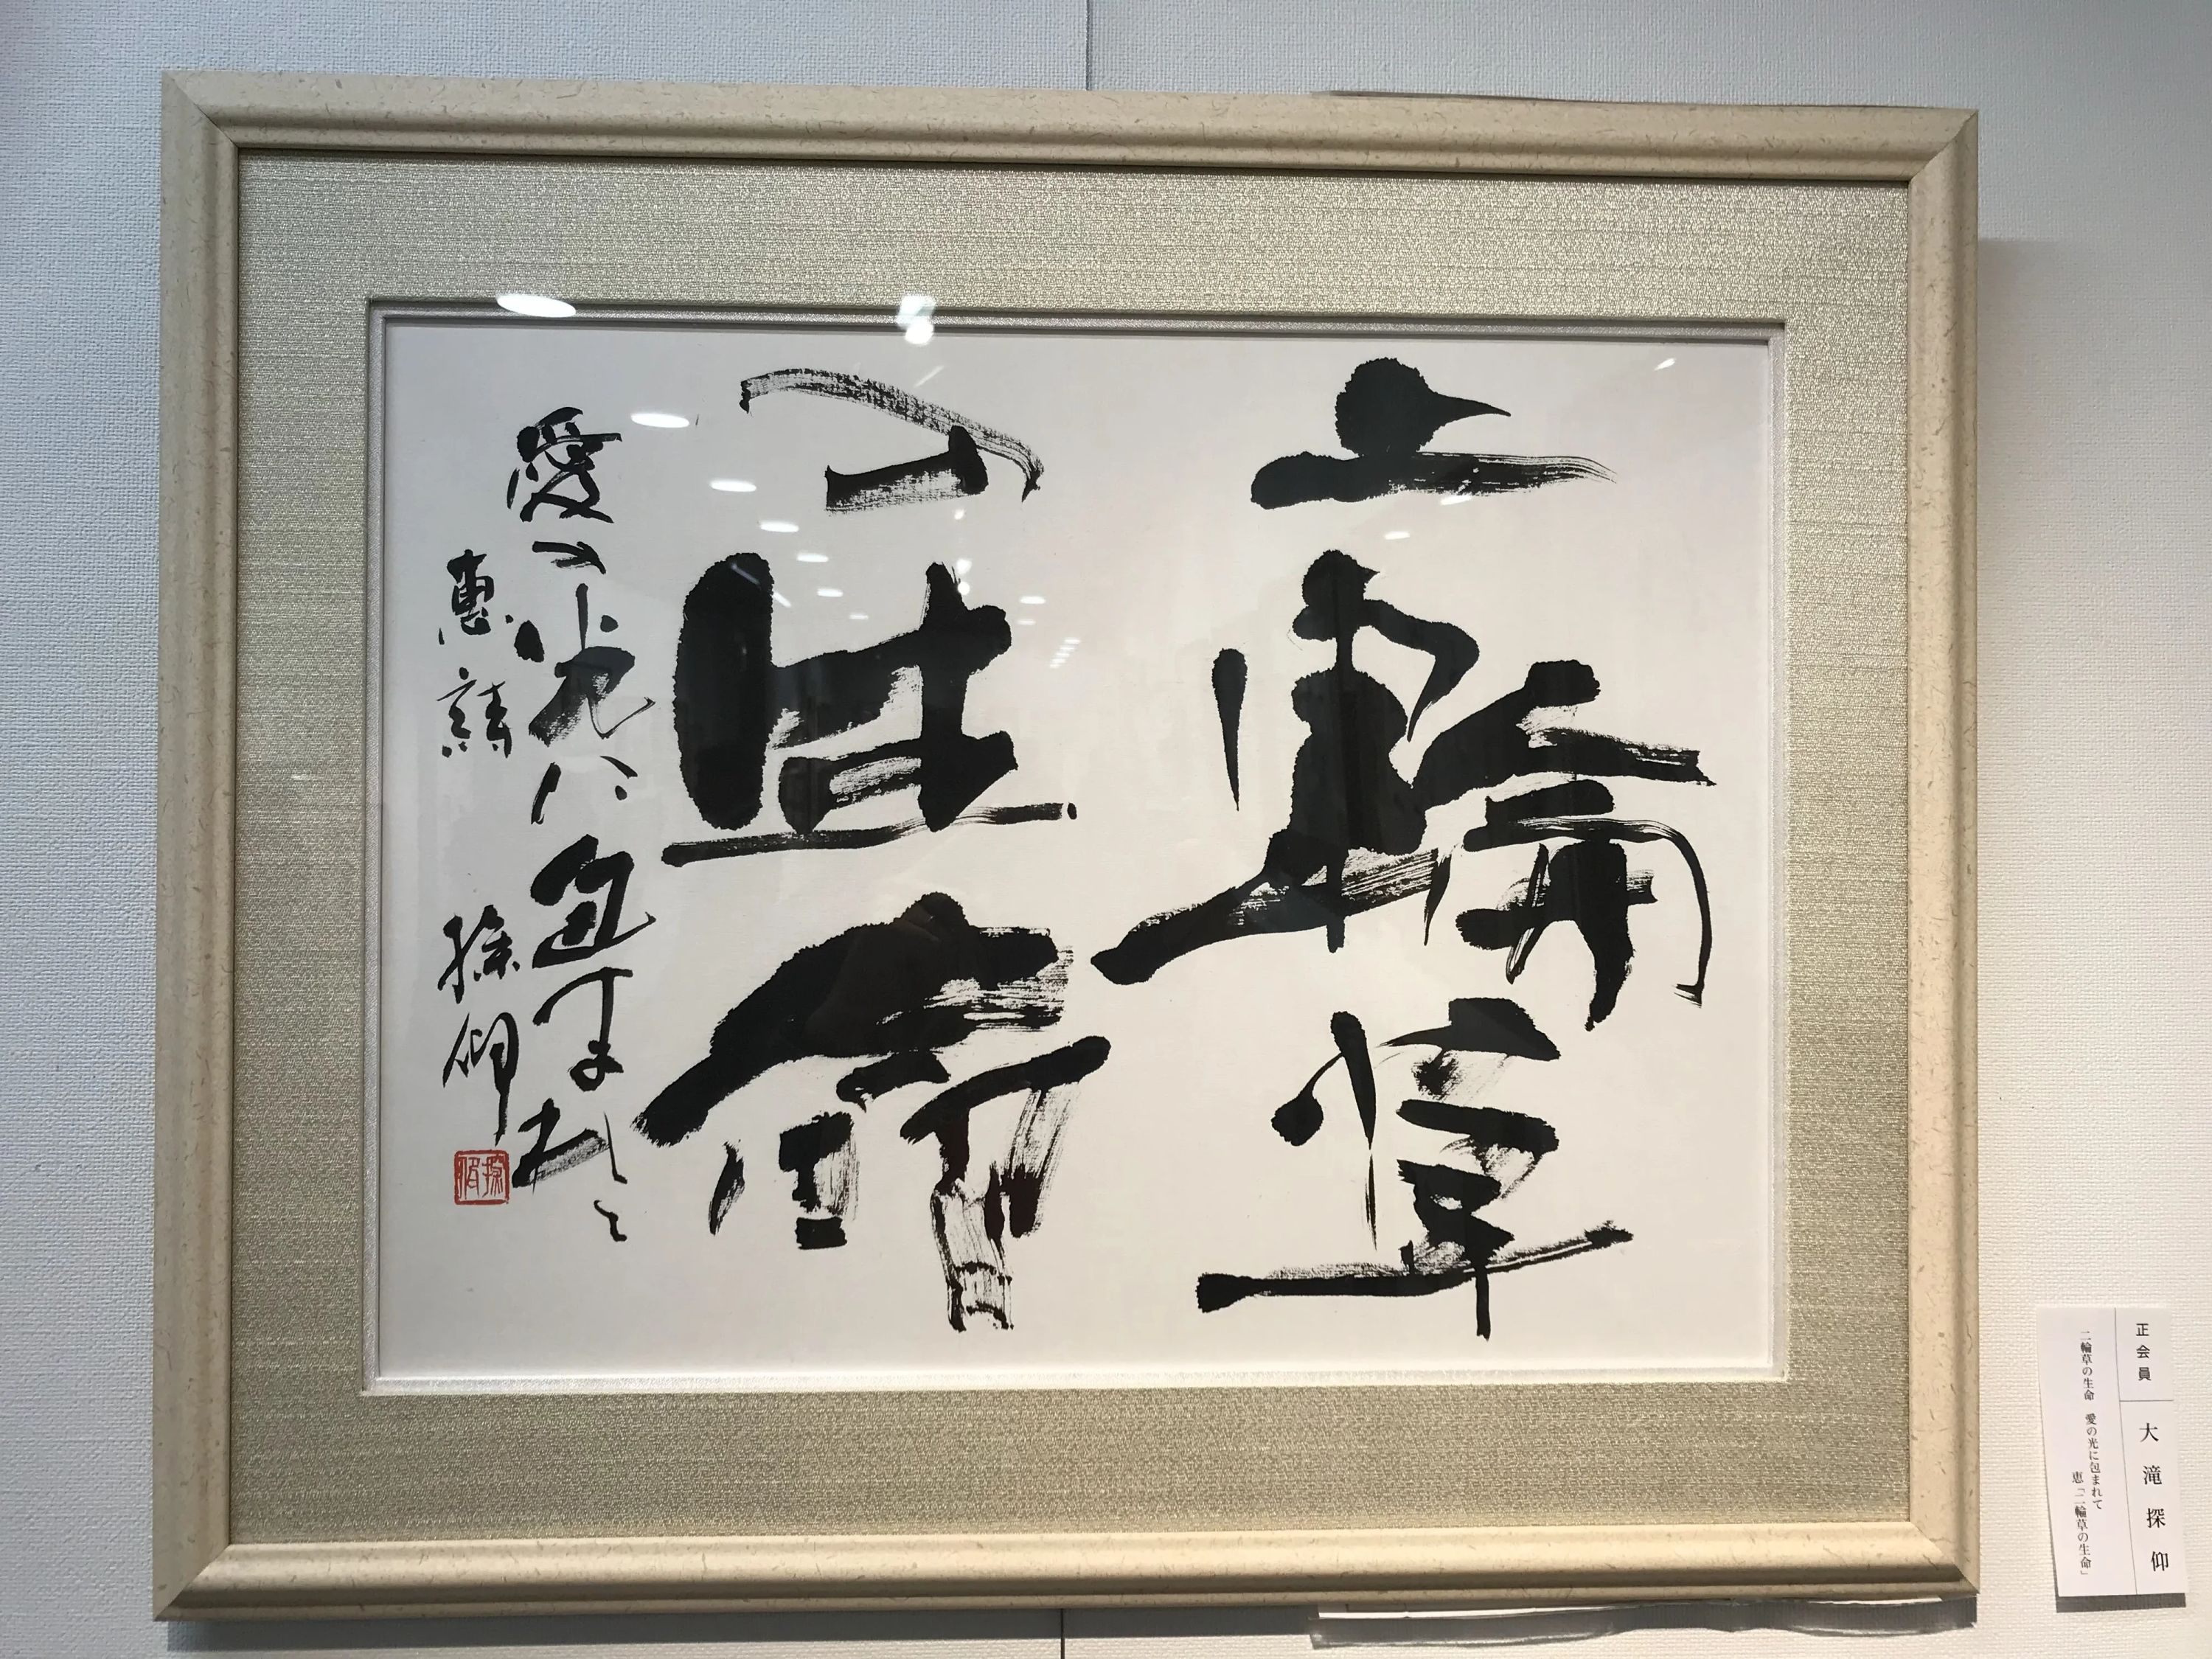 二輪草
の生命
愛の光に包まれて
恵詩 探仰
正会員 大滝探仰
二輪草の生命 愛の光に包まれて
恵「二輪草の生命」